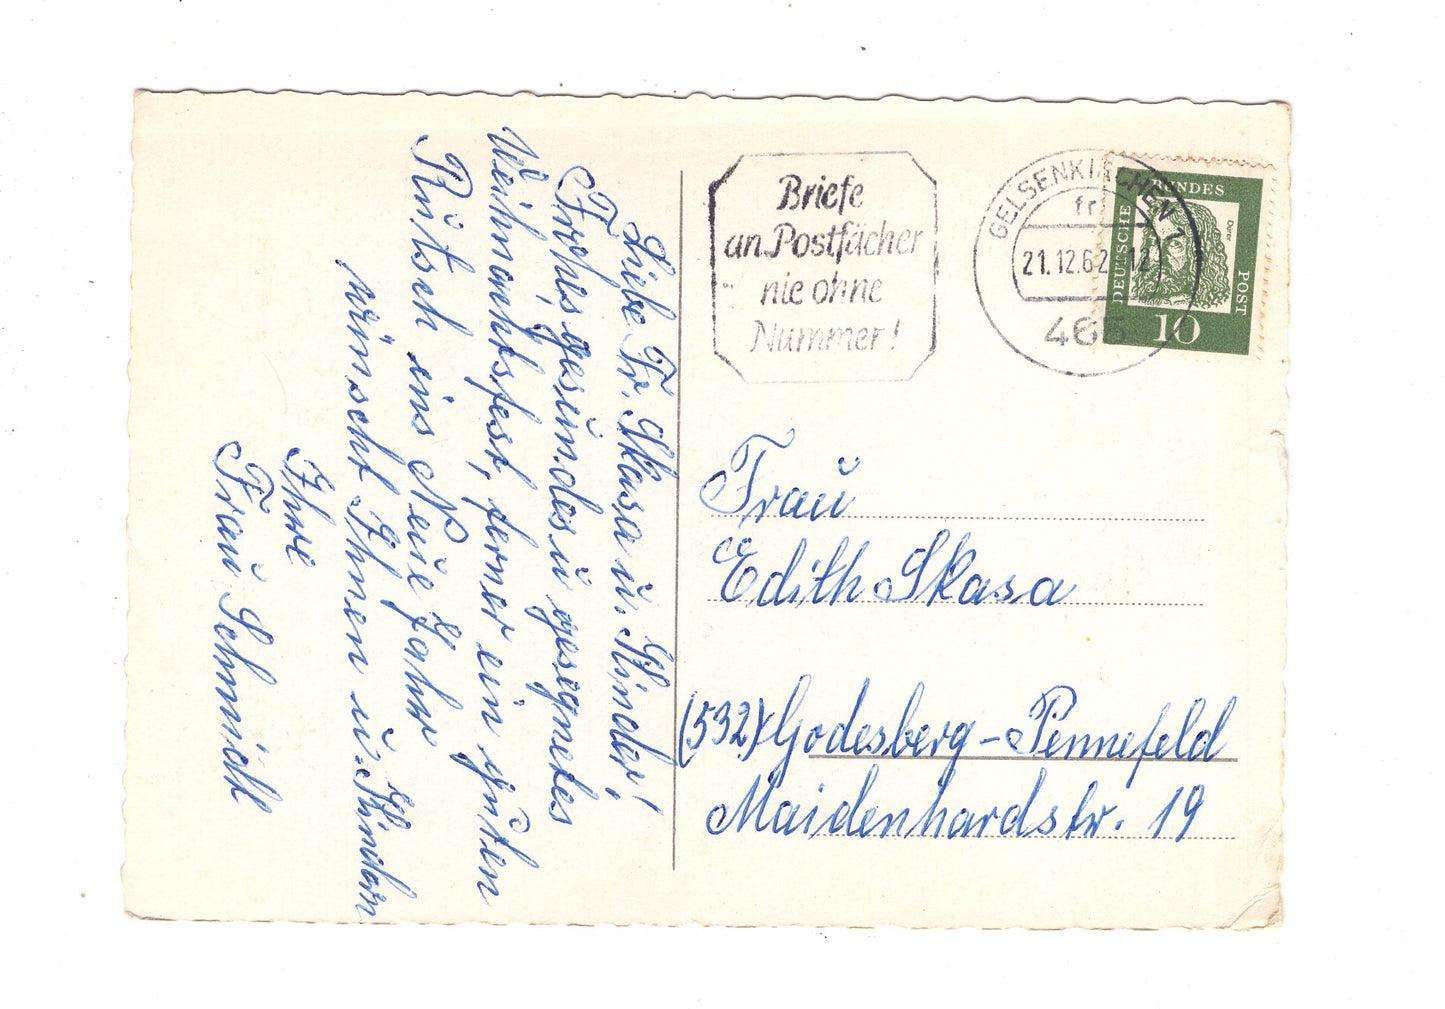 Liebe Fr. Skasa u. Kinder!
Frohes, gesundes u. gesegnetes
Weihnachtsfest, ferner ein guten
Rutsch ins Neue Jahr
wünscht Ihnen u. Kindern
Ihre
Frau Schmidt
Briefe
an Postfächer
nie ohne
Nummer!
GELSENKIRCHEN 1
fr
21.12.62 12
465
DEUTSCHE BUNDESPOST
Dürer
10
Frau
Edith Skasa
(532) Godesberg-Pennefeld
Maidenhardstr. 19